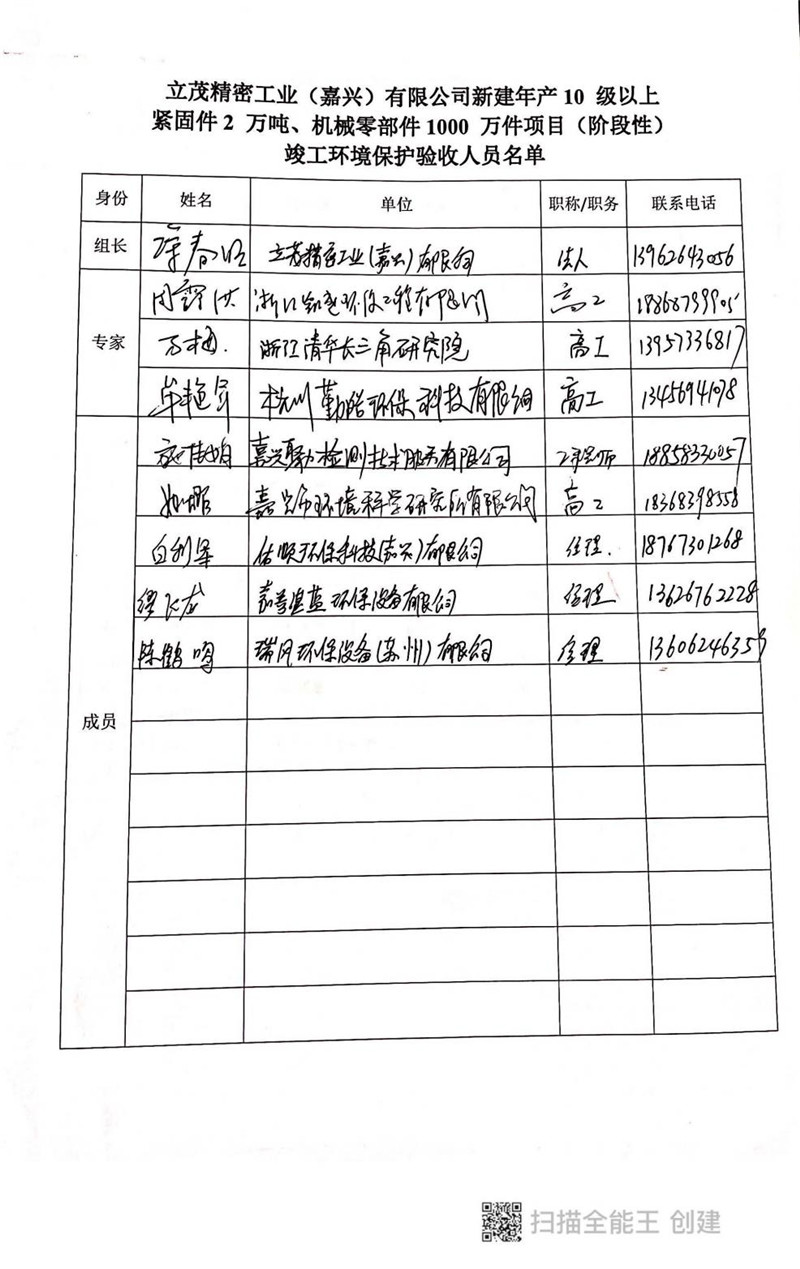 立茂精密工业（嘉兴）有限公司新建年产10 级以上
紧固件2 万吨、机械零部件1000 万件项目（阶段性）
竣工环境保护验收人员名单
身份 姓名 单位 职称/职务 联系电话
组长 春 立茂精密工业(嘉兴)有限公司 法人 13962643056
专家
周 浙江 环保工程有限公司 高工
万梅. 浙江清华长三角研究院 高工 13957336817
单艳 杭州勤皓环保科技有限公司 高工 13456941078
成员
嘉兴聚力检测技术服务有限公司 工程师 18858330057
嘉兴市环境科学研究所有限公司 高工 18368398558
白利 佑顺环保科技(嘉兴)有限公司 经理. 18767301268
缪飞龙 嘉善湛蓝环保设备有限公司 经理 13626762228
陈鹤鸣 瑞风环保设备(苏州)有限公司 经理
扫描全能王 创建